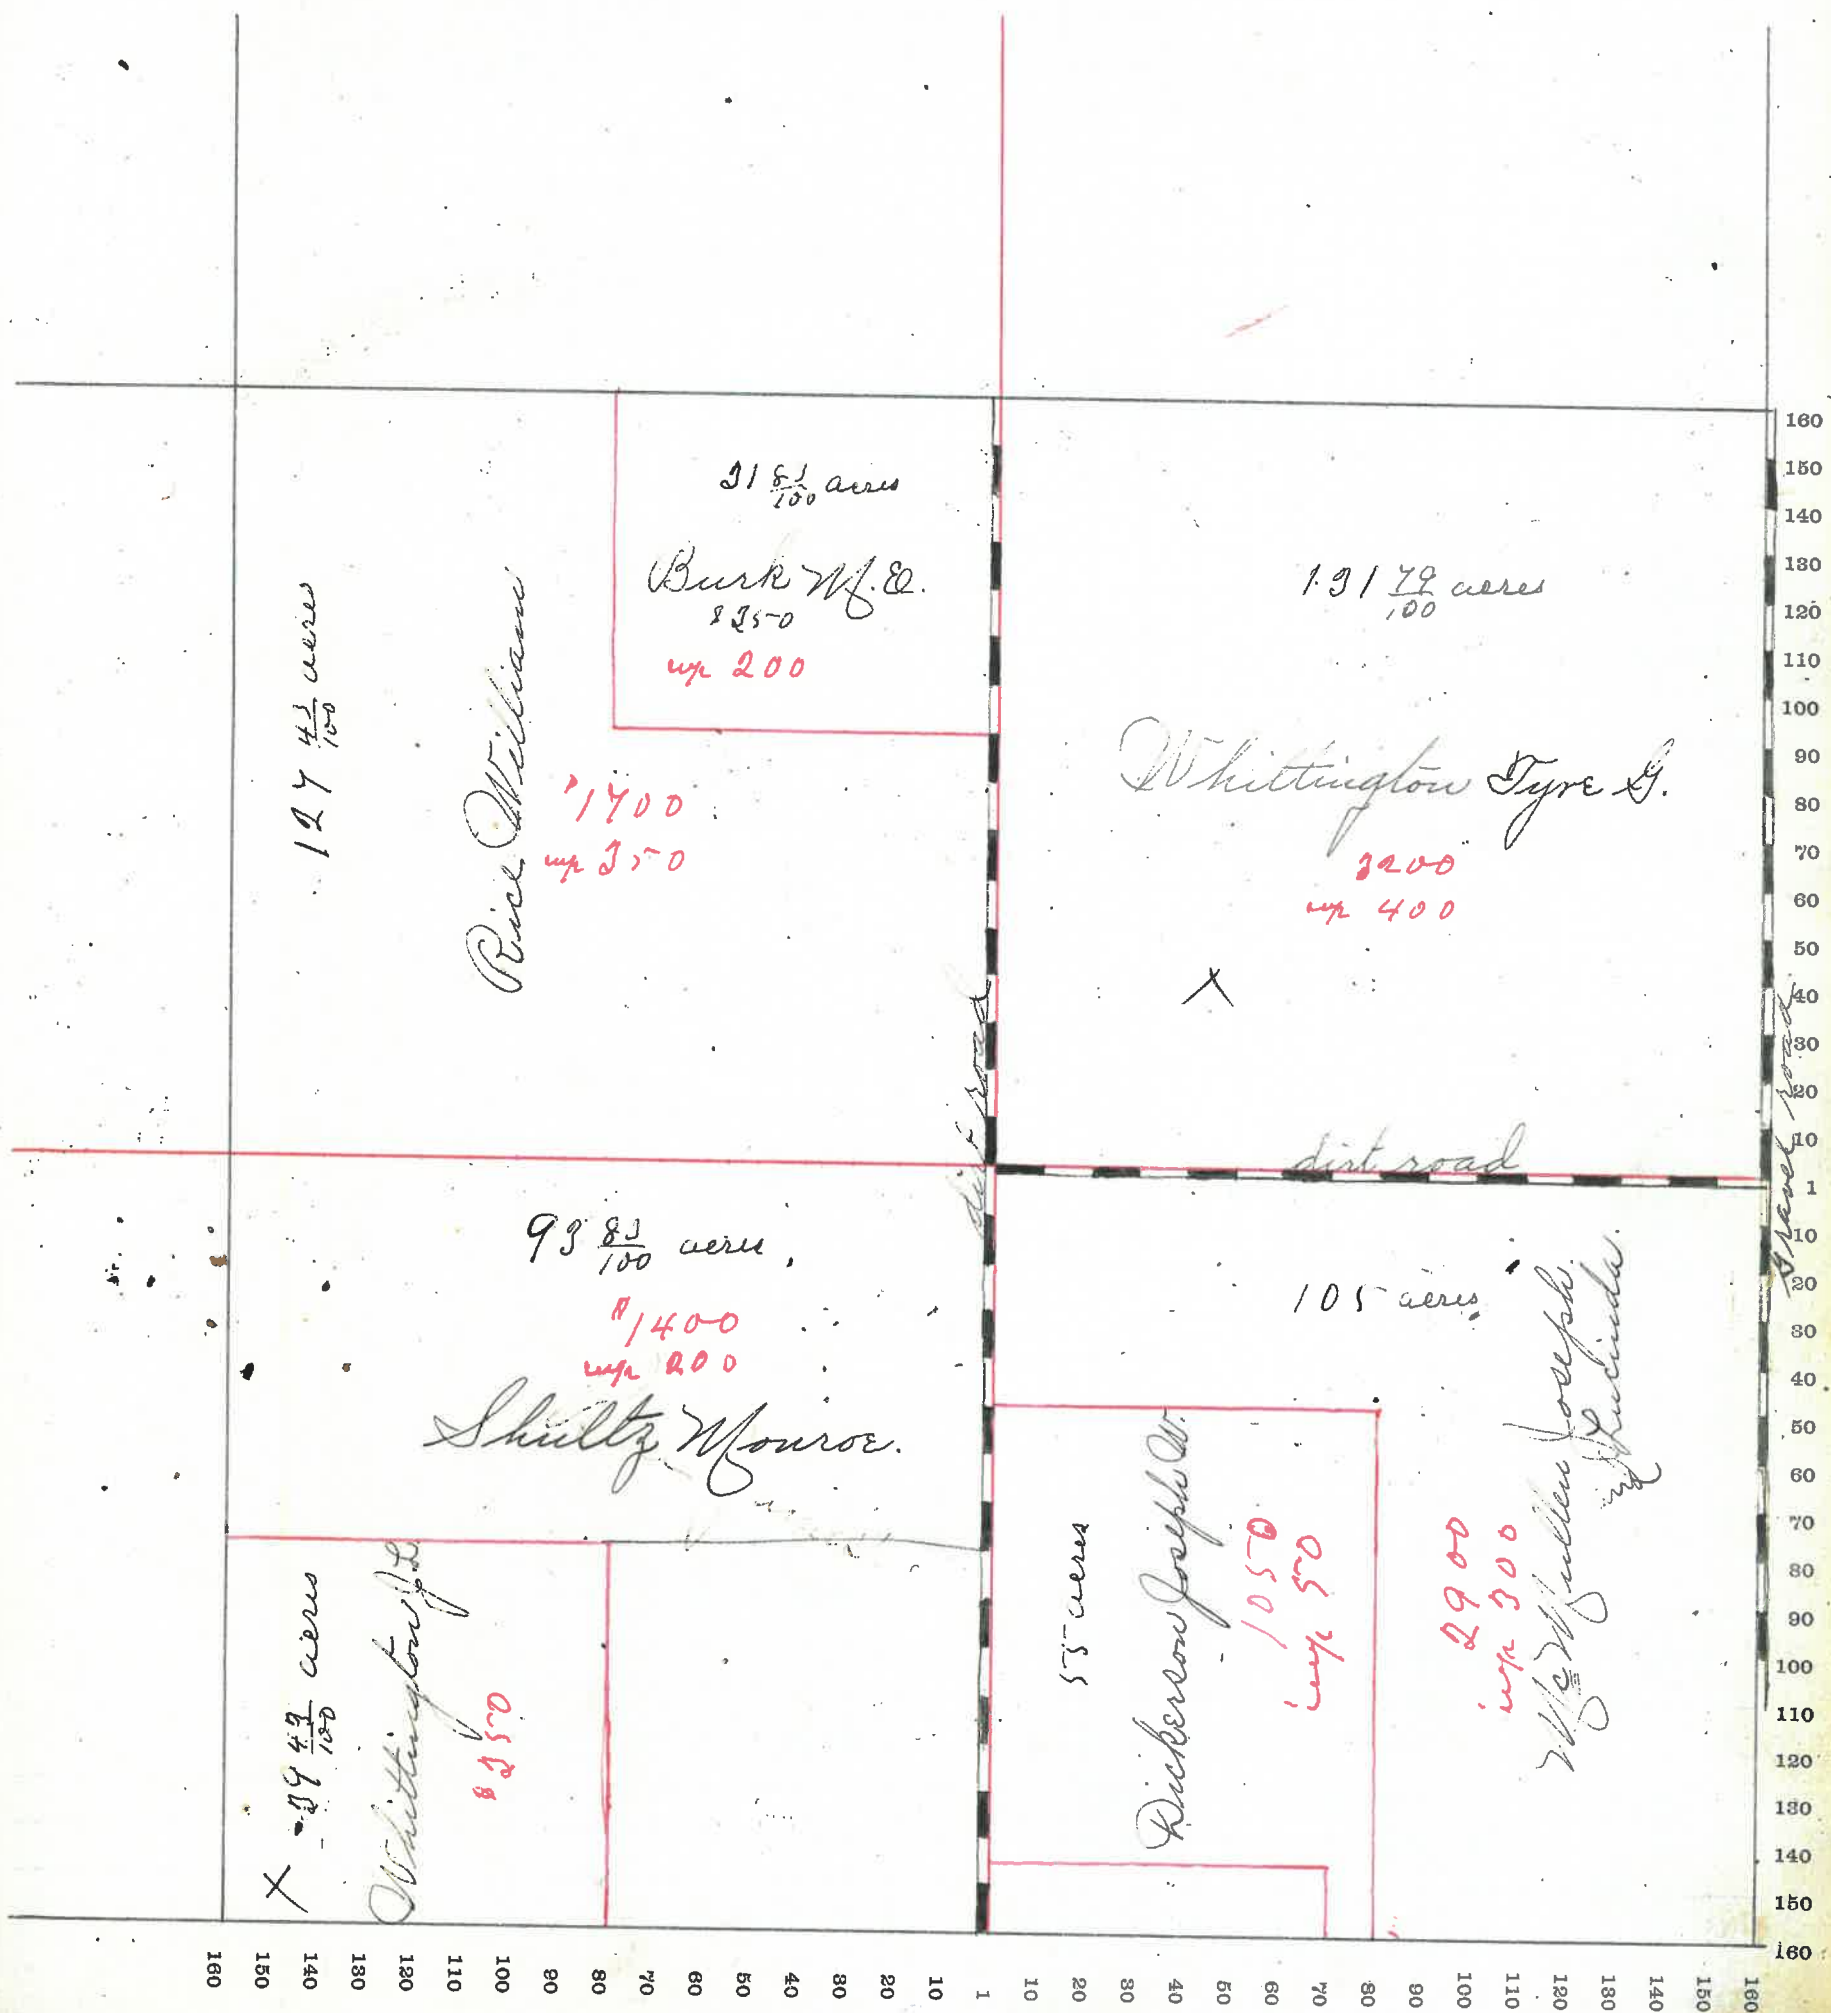 31 83/100 acres
Burk M. E.
$350
imp 200
127 43/100 acres
Rice William
$1700
imp 350
131 79/100 acres
Whittington Tyre G.
3200
imp 400
X
dirt road
dirt road
Gravel road
93 83/100 acres
$1400
imp 200
Shultz Monroe.
105 acres
McMullen Joseph.
Lucinda.
2900
imp 300
55 acres
Dickerson Joseph W.
1050
imp 50
X 39 43/100 acres
Whittington J. L.
160
150
140
130
120
110
100
90
80
70
60
50
40
30
20
10
1
10
20
30
40
50
60
70
80
90
100
110
120
130
140
150
160
160 150 140 130 120 110 100 90 80 70 60 50 40 30 20 10 1 10 20 30 40 50 60 70 80 90 100 110 120 130 140 150 160